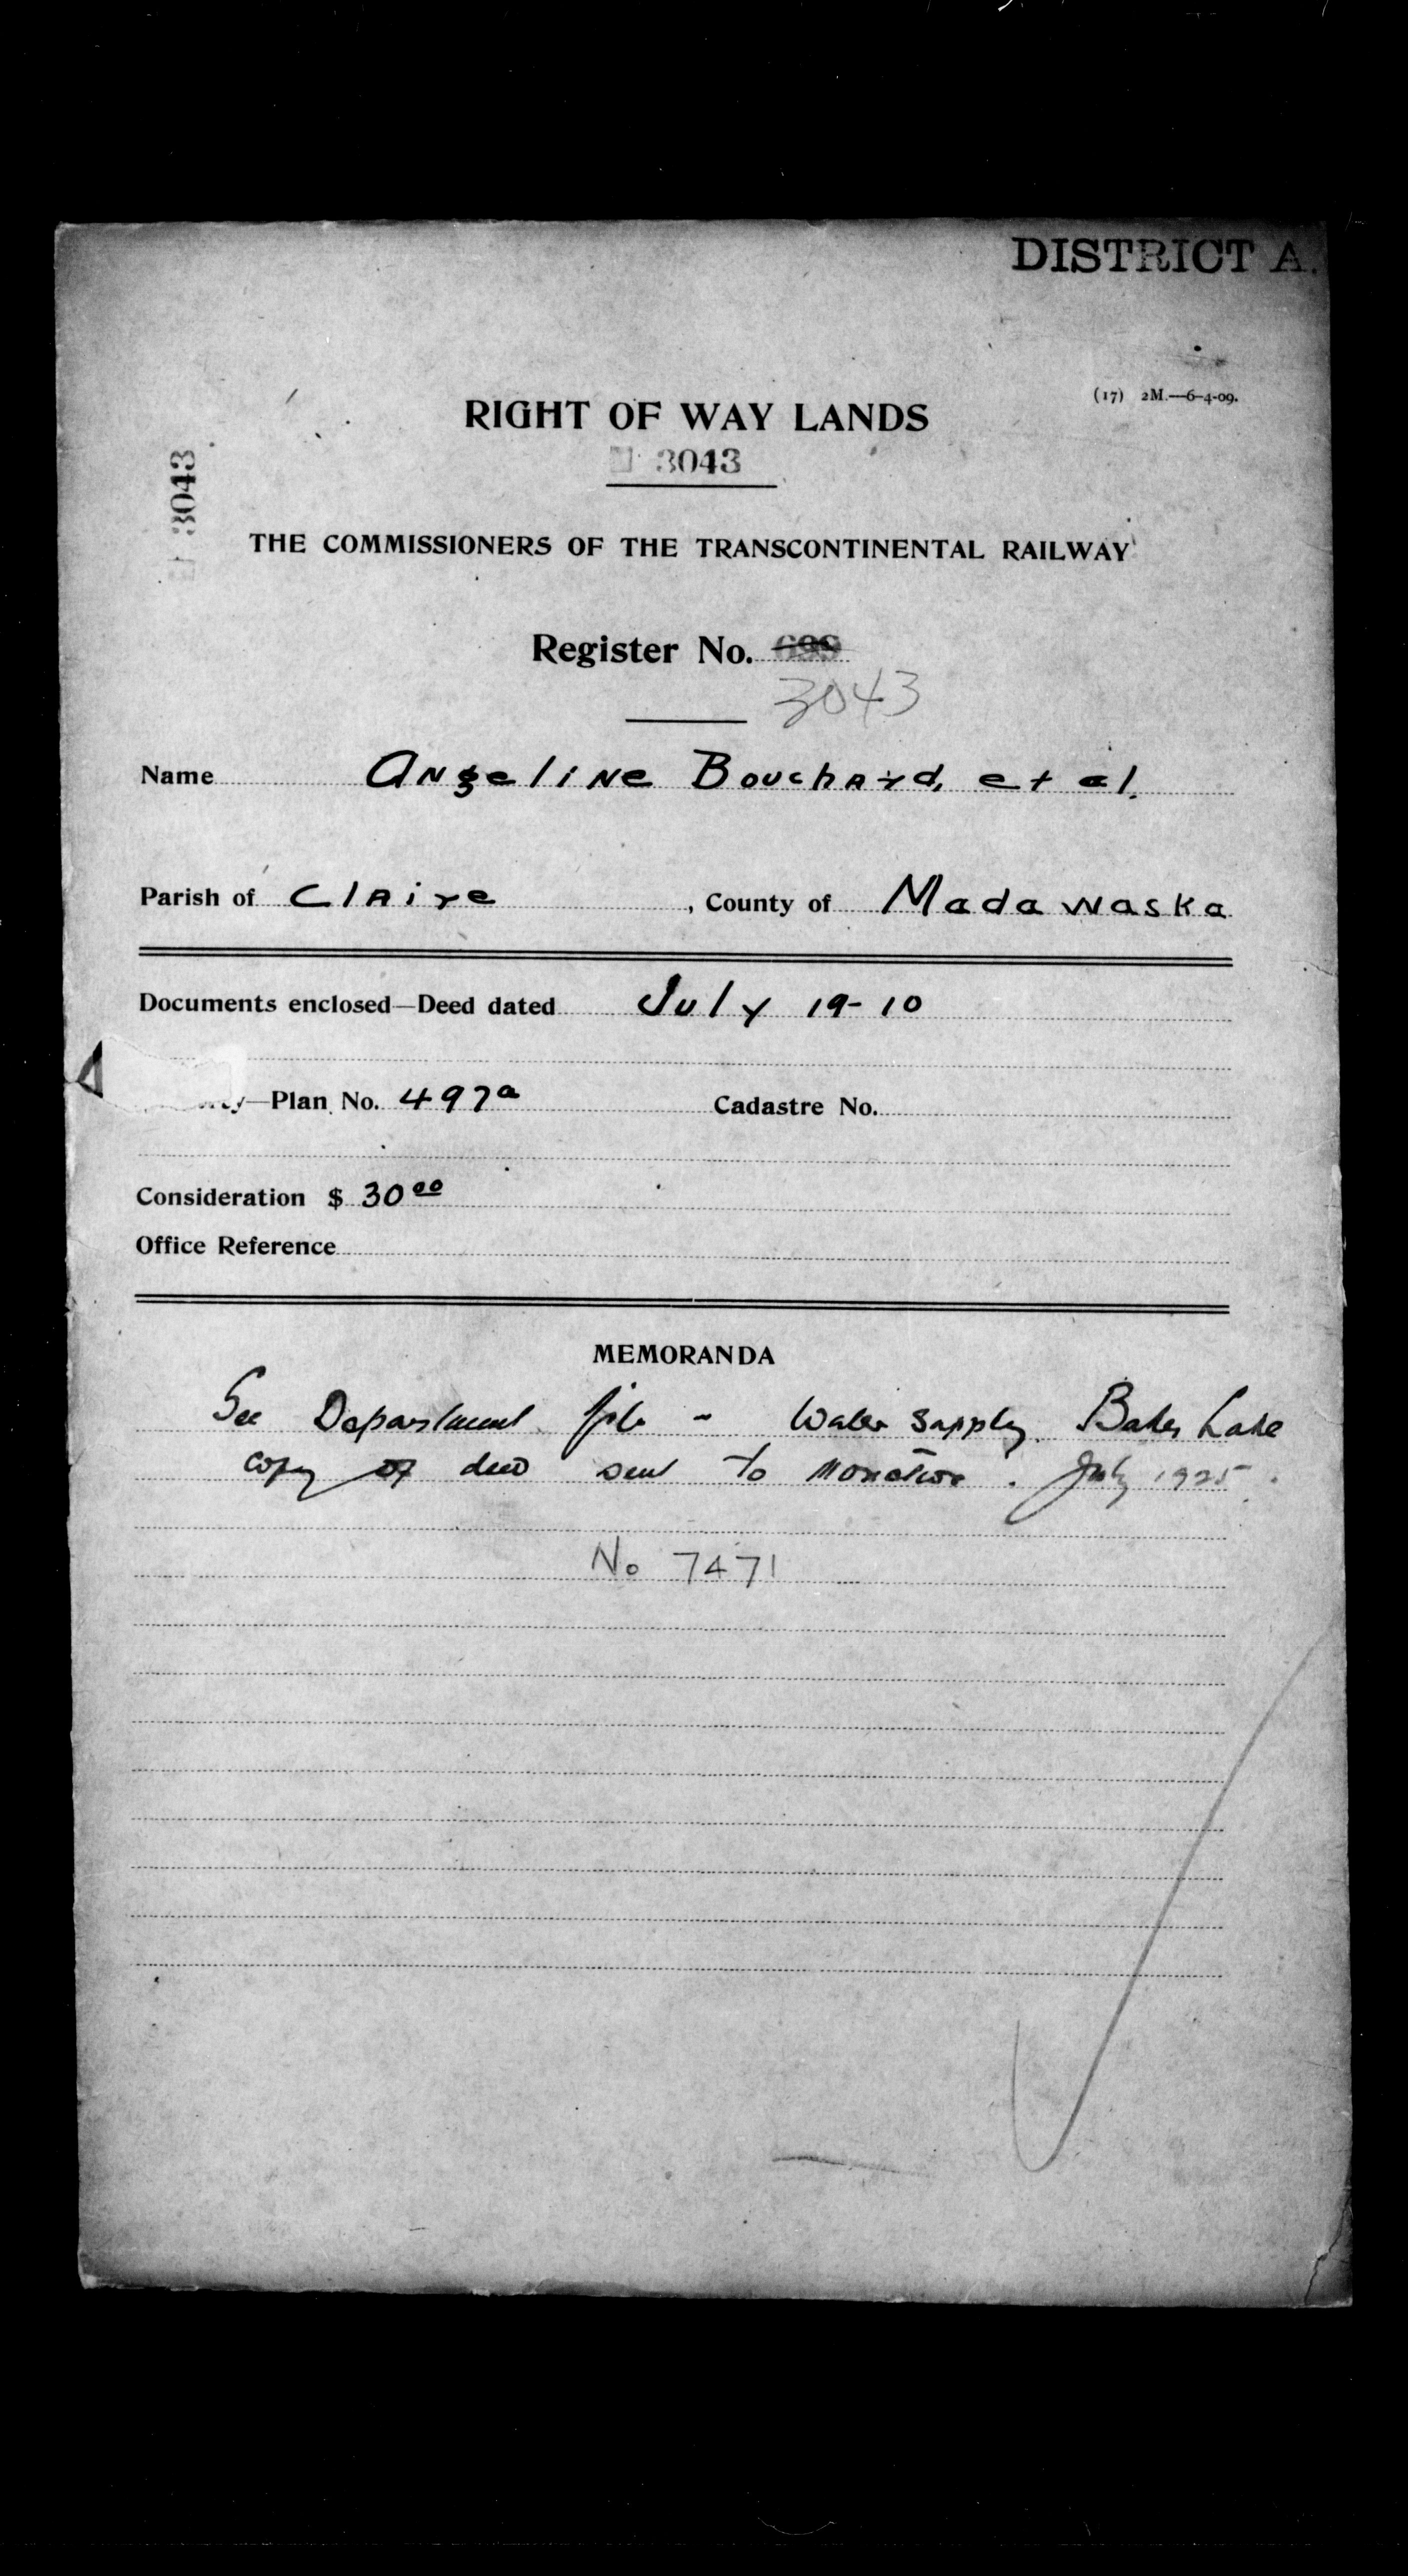 DISTRICT A.
(17) 2M.—6-4-09.
RIGHT OF WAY LANDS
3043
3043
THE COMMISSIONERS OF THE TRANSCONTINENTAL RAILWAY
Register No. 699
3043
Name Angeline Bouchard, et al.
Parish of Claire, County of Madawaska
Documents enclosed—Deed dated July 19-10
—Plan No. 497a Cadastre No.
Consideration $ 30 00
Office Reference
MEMORANDA
See Department file - Water Supply. Baker Lake
copy of deed sent to Moncton. July 1925.
No 7471